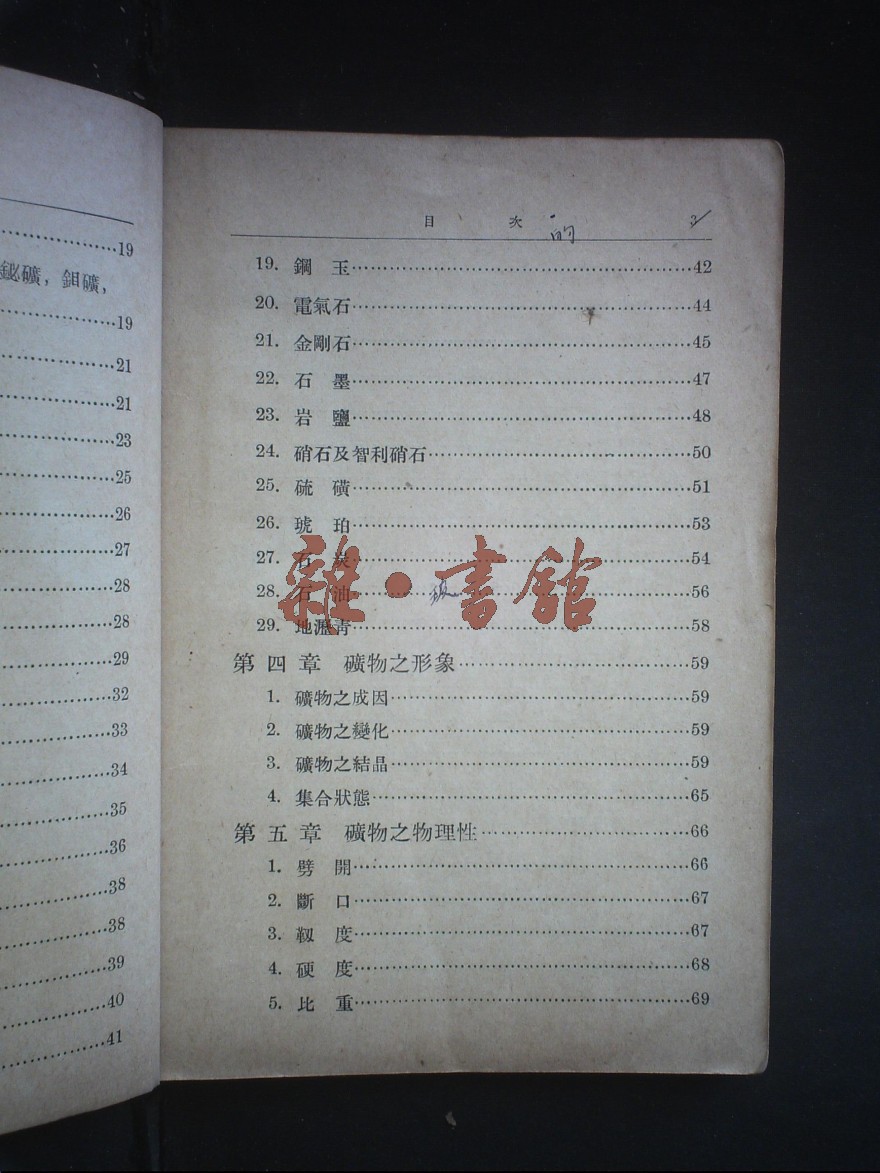 19
鉍礦，鉬礦，
19
21
21
23
25
26
27
28
28
29
32
33
34
35
36
38
38
39
40
41
目 次 3
的
19. 鋼 玉 42
20. 電氣石 44
21. 金剛石 45
22. 石 墨 47
23. 岩 鹽 48
24. 硝石及智利硝石 50
25. 硫 磺 51
26. 琥 珀 53
27. 石 炭 54
28. 石 油 56
29. 地瀝青 58
雜·書館
第四章 礦物之形象 59
1. 礦物之成因 59
2. 礦物之變化 59
3. 礦物之結晶 59
4. 集合狀態 65
第五章 礦物之物理性 66
1. 劈 開 66
2. 斷 口 67
3. 韌 度 67
4. 硬 度 68
5. 比 重 69